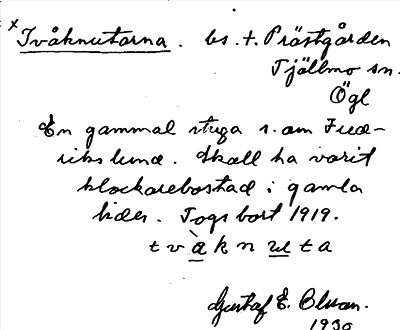 x Tvåknutarna. bs. t. Prästgården
Tjällmo sn.
Ögl
En gammal stuga s. om Fred-
rikslund. Skall ha varit
klockarebostad i gamla
tider. Togs bort 1919.
tvàknuta
Gustaf E. Olsson.
1930